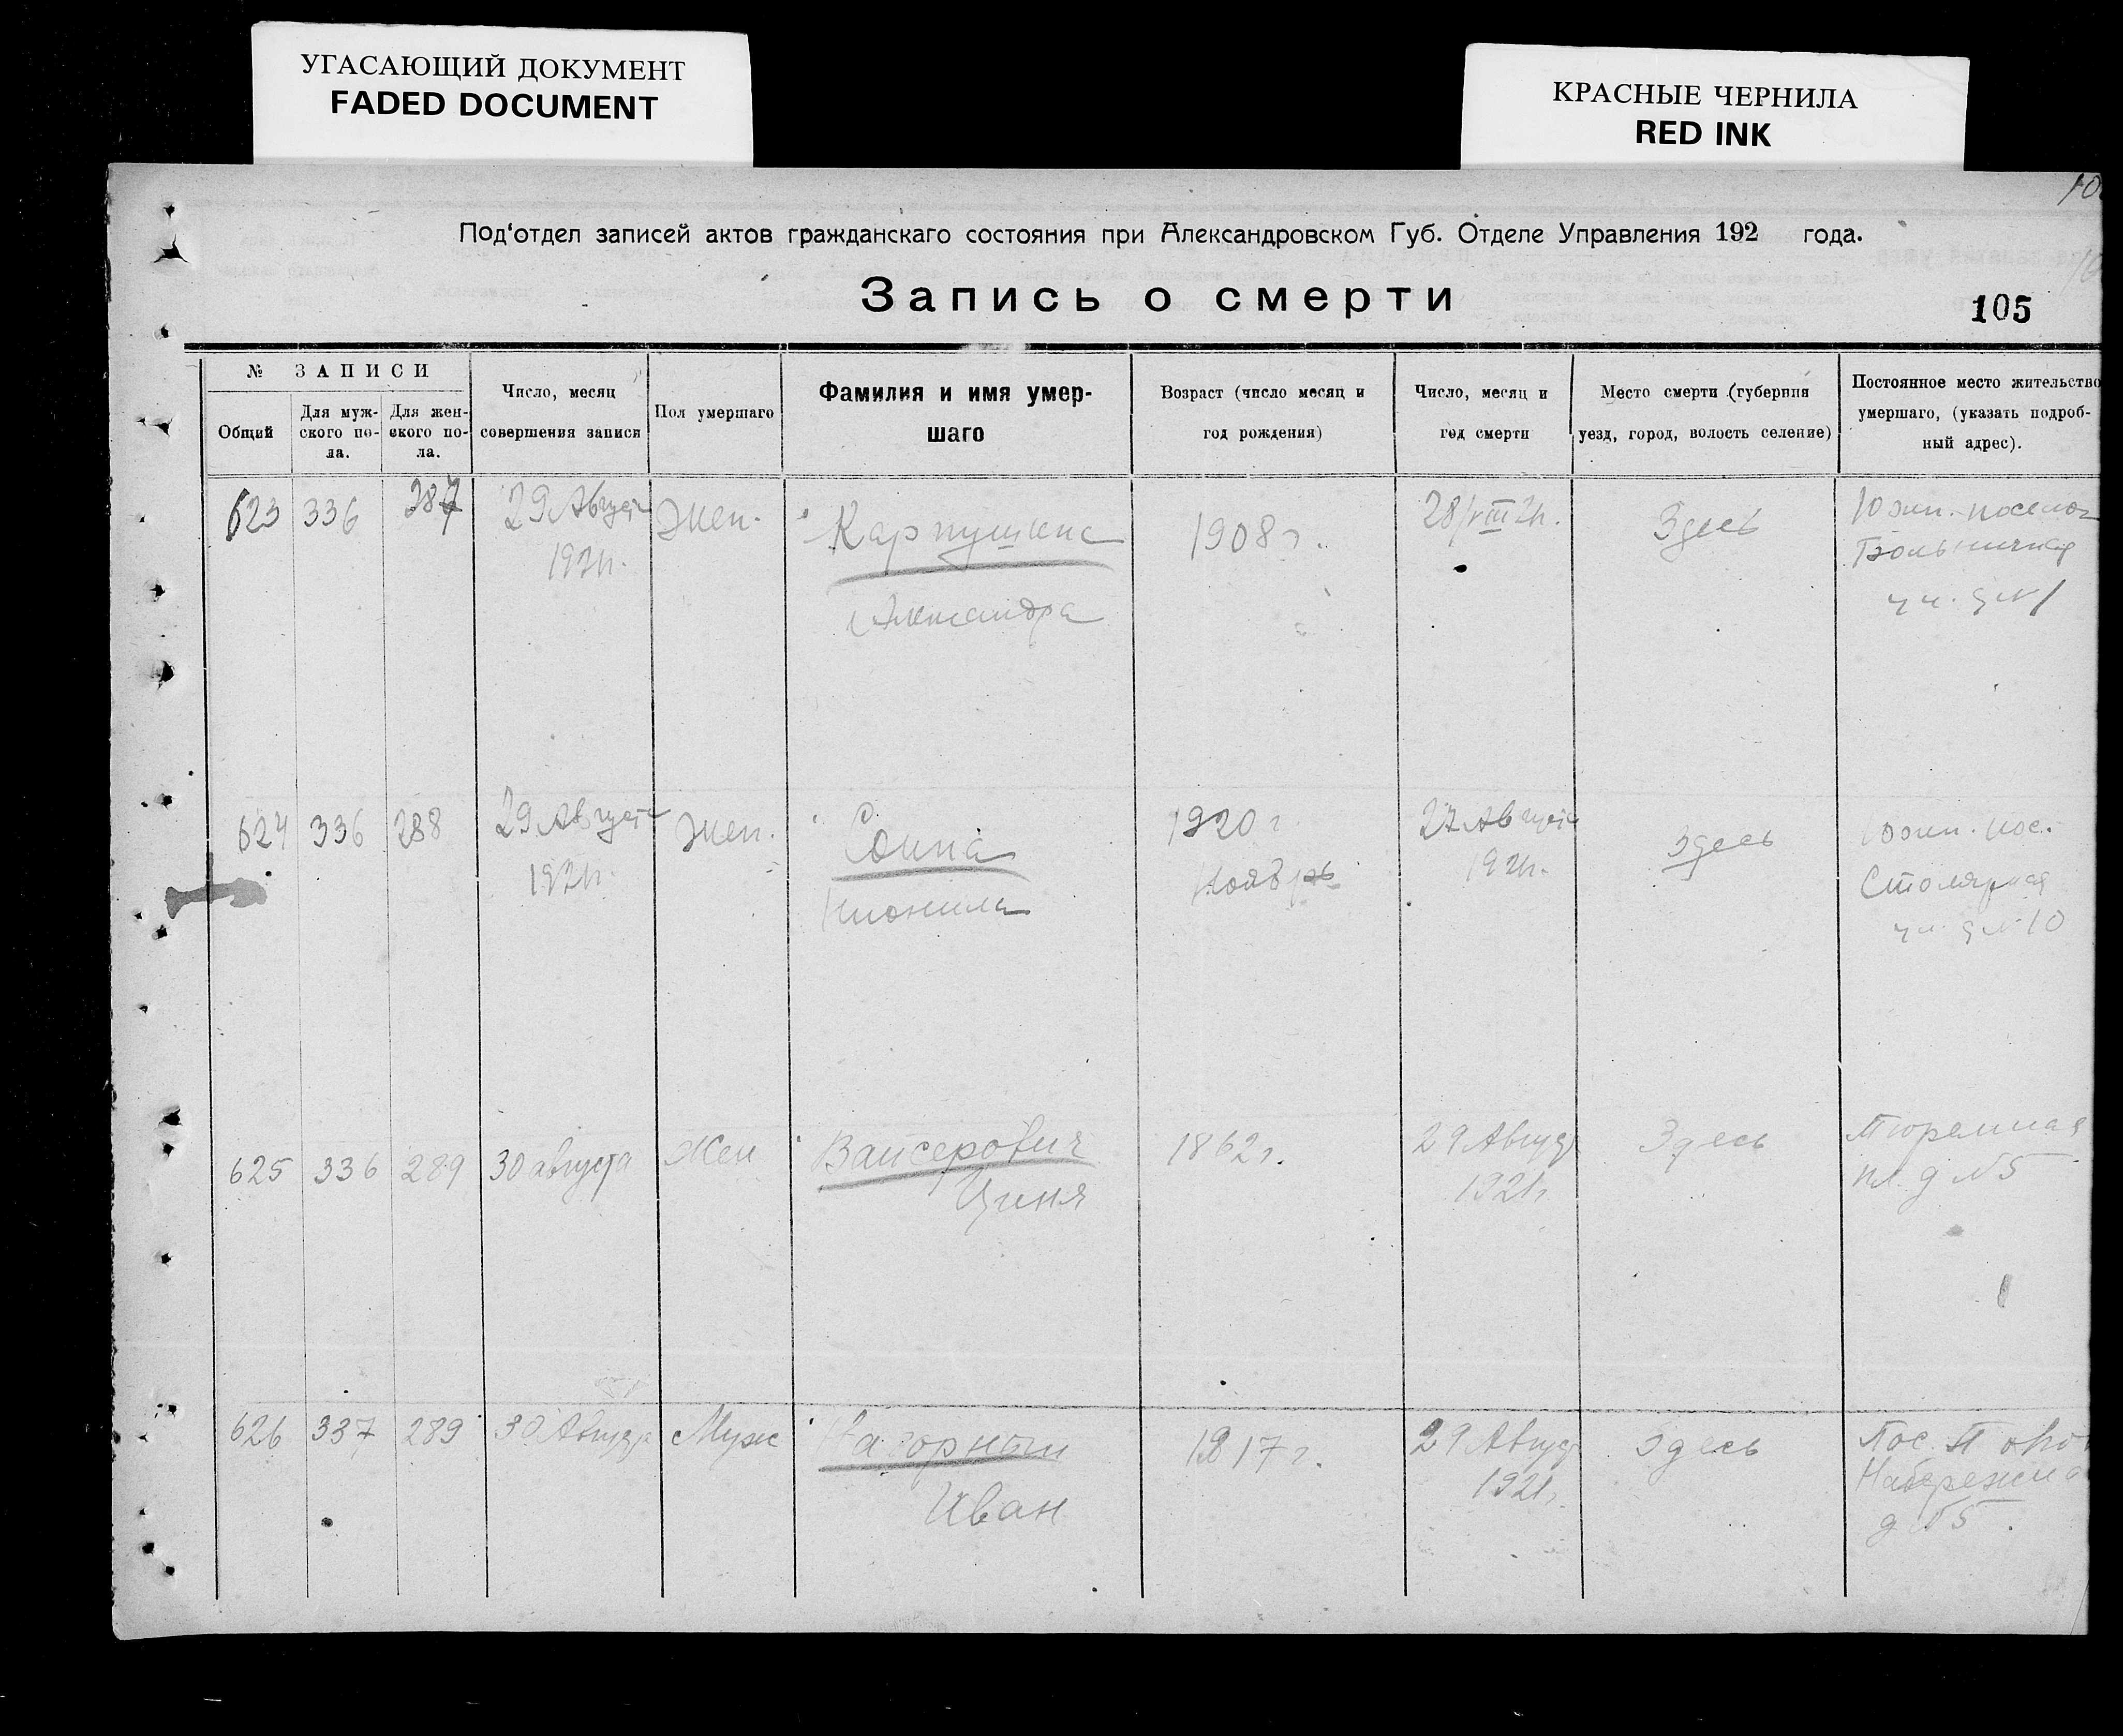 УГАСАЮЩИЙ ДОКУМЕНТ
FADED DOCUMENT
КРАСНЫЕ ЧЕРНИЛА
RED INK
Под'отдел записей актов гражданскаго состояния при Александровском Губ. Отделе Управления 192 года.
Запись о смерти
105
№ ЗАПИСИ
Общий
Для муж-
ского по-
ла.
Для жен-
ского по-
ла.
Число, месяц
совершения записи
Пол умершаго
Фамилия и имя умер-
шаго
Возраст (число месяц и
год рождения)
Число, месяц и
год смерти
Место смерти (губерния
уезд, город, волость селение)
Постоянное место жительство
умершаго, (указать подроб-
ный адрес).
623 336 287
29 Августа
1921г.
Жен.
Карпушена
Александра
1908 г.
28/VIII 21г.
Здесь
Южн. поселок
Больничная
ул. д № 1
624 336 288
29 Августа
1921г.
Жен.
Соина
1920 г.
Ноябрь
27 Августа
1921г.
Здесь
Южн. пос.
Столярная
ул. д № 10
625 336 289
30 августа
Жен
Вансерович
Циня
1862 г.
29 Август
1921г
Здесь
Тюремная
пл. д № 5
626 337 289
30 Август
Муж
Нагорный
Иван
1817 г.
29 Август
1921г.
Здесь
Пос.
Набережна
д № 5.